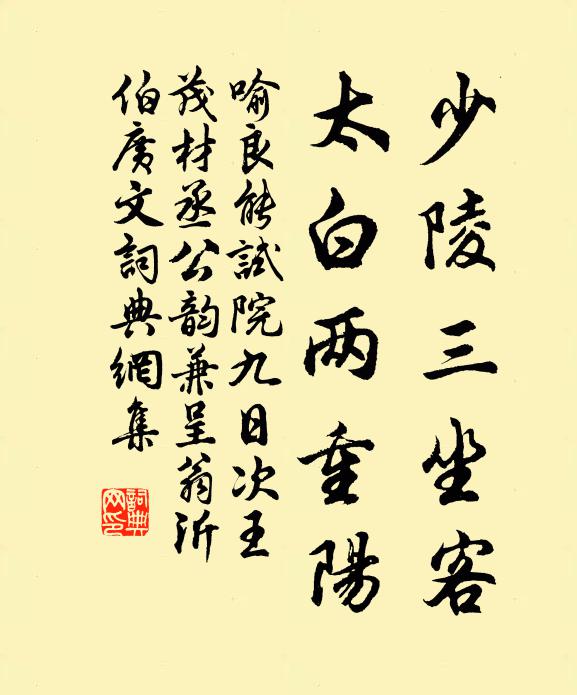 少陵三坐客
太白两重陽
喻良能試院九日次王
茂材丞公韵兼呈翁沂
伯廣文詞典網集
詞典
网印